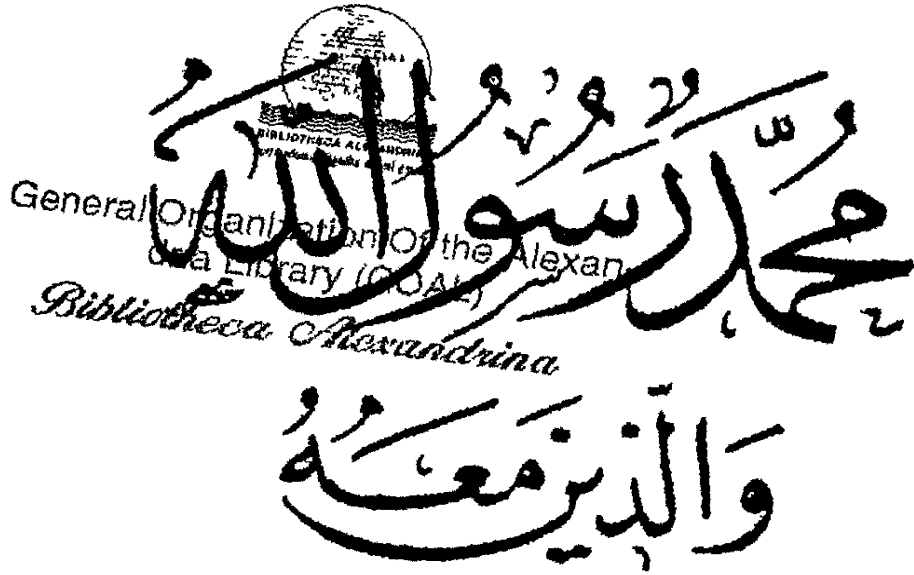 مُحَمَّدٌ رَسُولُ اللهِ
وَالَّذِينَ مَعَهُ
BIBLIOTHECA ALEXANDRINA
General Organization Of the Alexan
dria Library (GOAL)
Bibliotheca Alexandrina